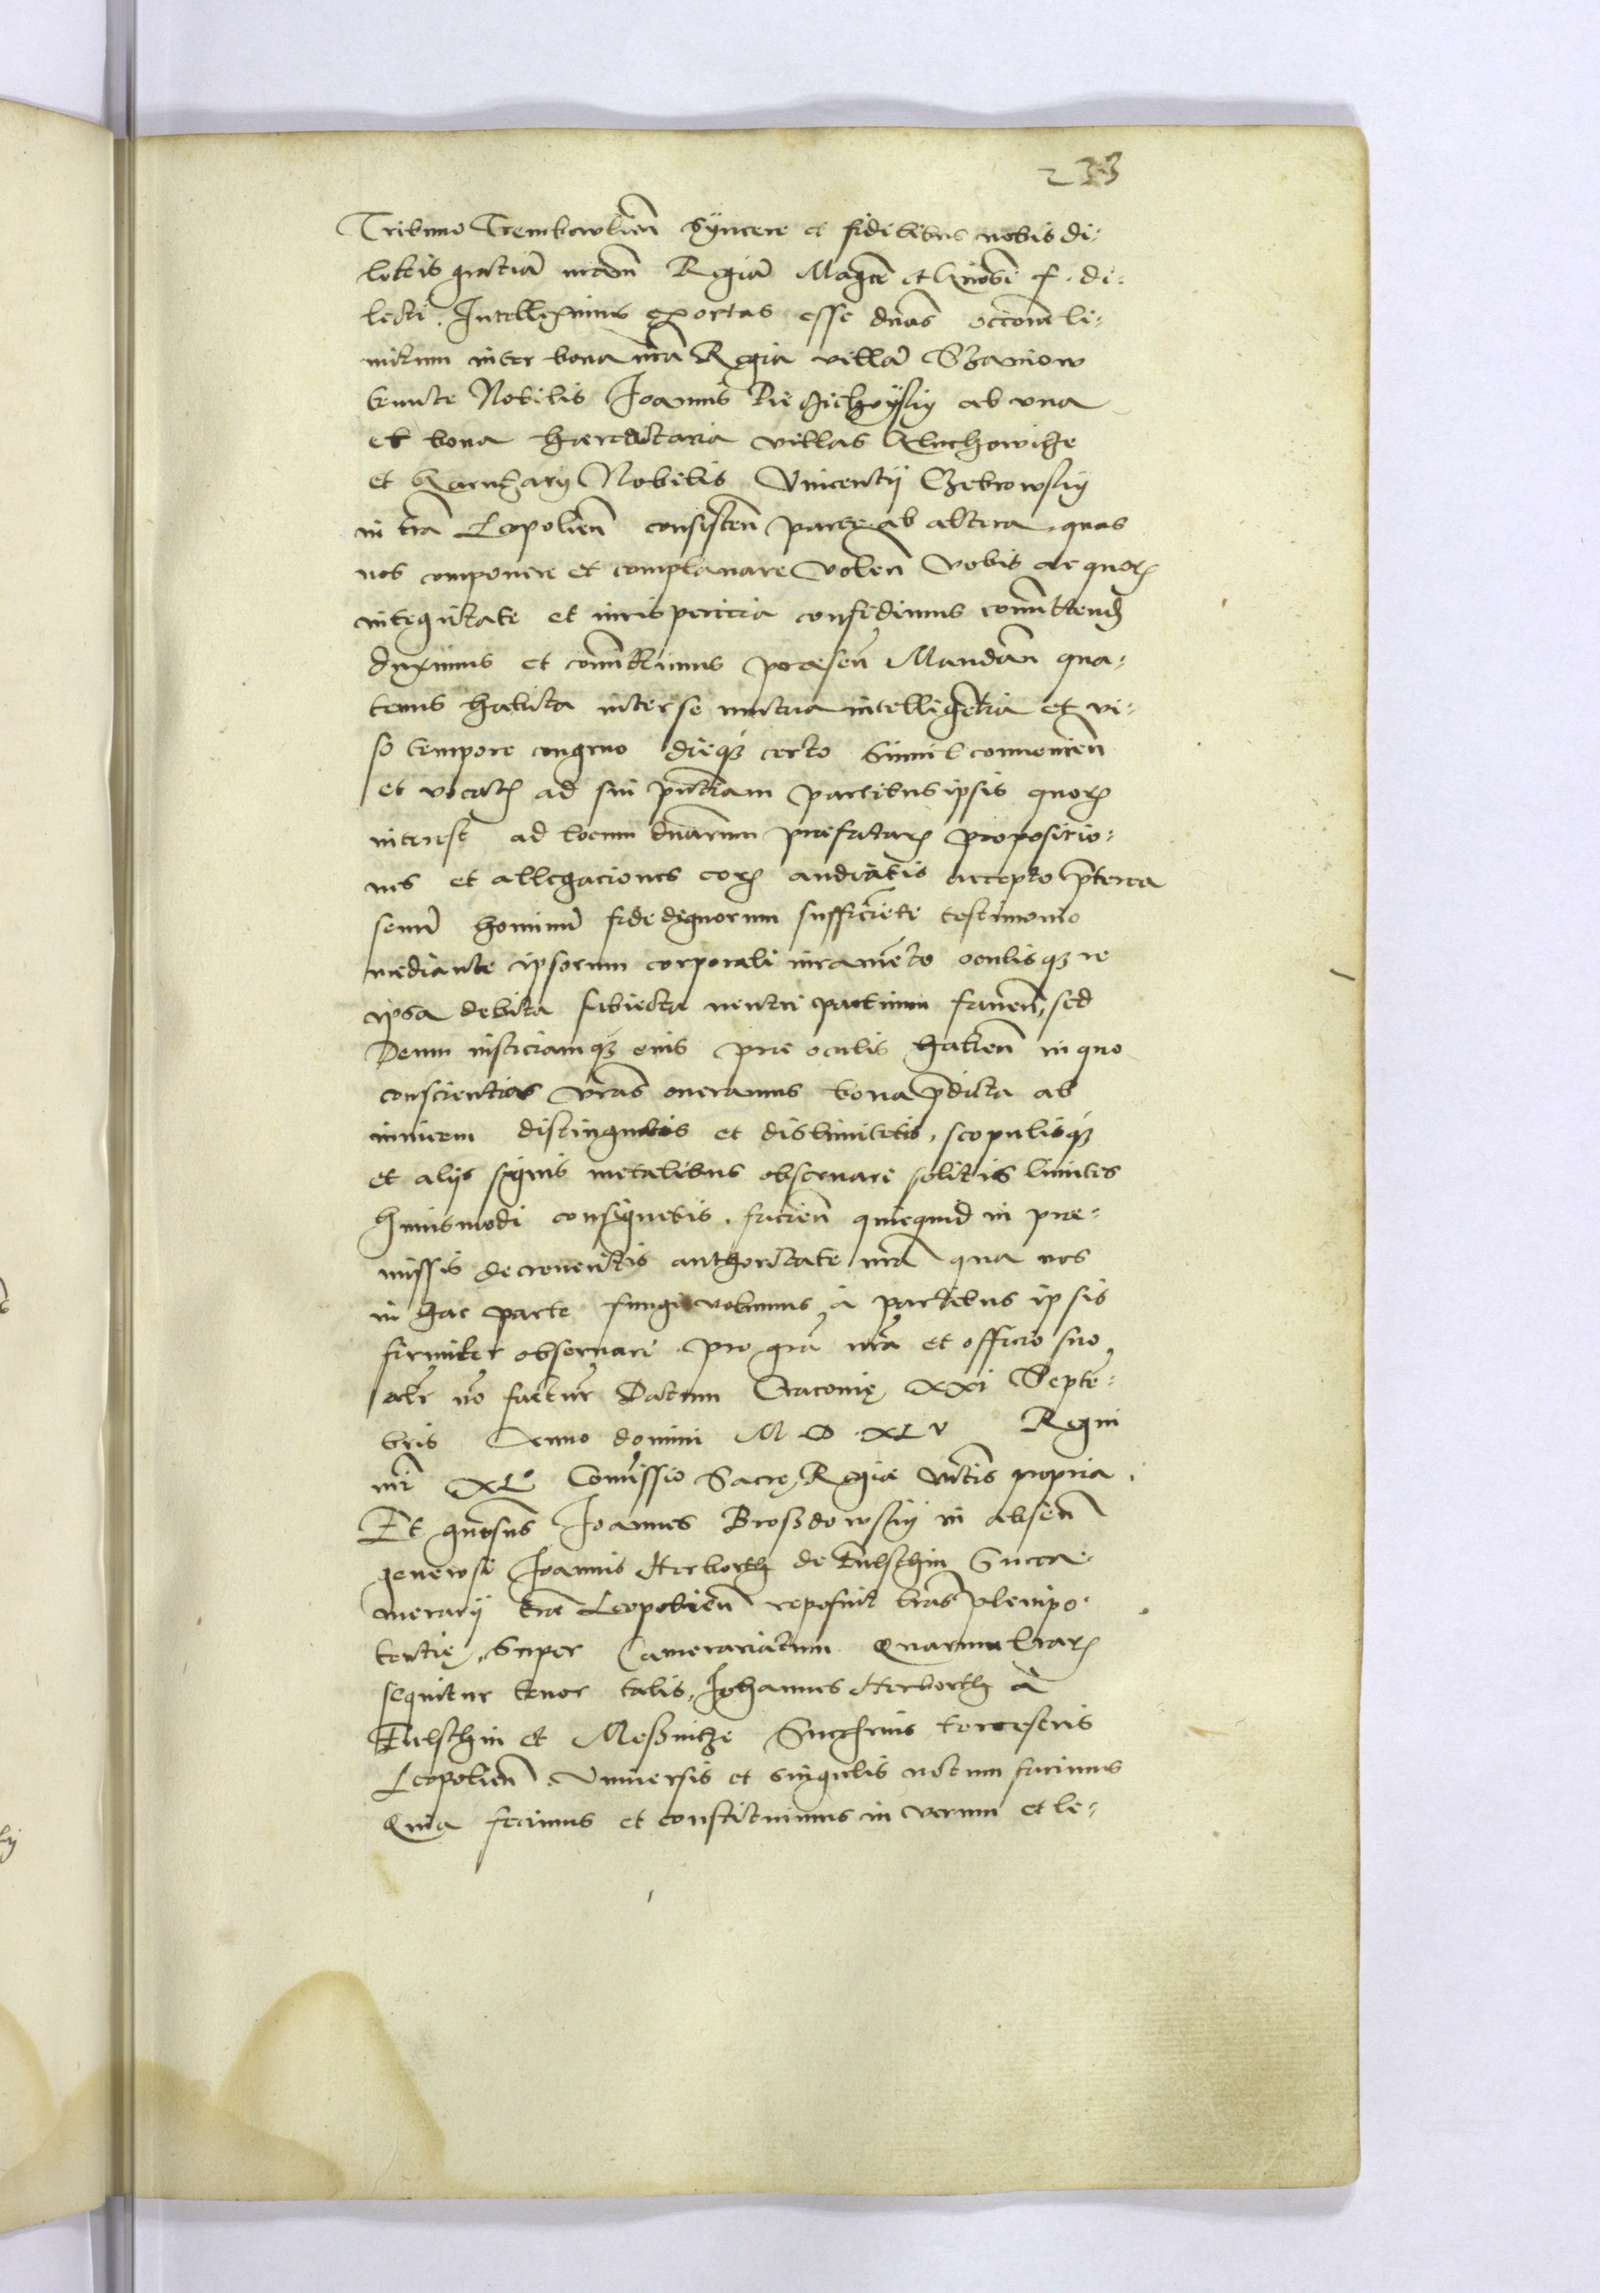 233
Tribuno Trembowlien Syncere et fidelibus nobis di-
lectis gratiã nrãm Regiã Magce et Gnose f. di-
lecti. Intelleximus exortas esse dnas occone li-
mitum inter bona nrã Regia villã Szaniow
tenute Nobilis Joannis ab una
et bona hereditaria villas Kluchowicze
et Nobilis Vincentij Czebrowskij
in trã Leopolien consisten parte ab altera. quas
nos componere et complanare volen vobis de quor
integritate et iurisperitia confidimus comittend
duximus et comittimus presen Mandan qua-
tenus habita inter se mutua intelligẽtia et vi-
so tempore congruo dieq certo simul convenien
et vocatis ad sui pntiam partibus ipsis quor
interest ad locum dnarum prefatar propositio-
nes et allegaciones eor audiatis accepto pterea
seniũ hominũ fidedignorum sufficiẽte testimonio
mediante ipsorum corporali iuramẽto oculisq re
ipsa debita subiecta neutri partium faven, sed
Deum iusticiamq eius pre oculis haben in quo
conscientias vras oneramus bona pdicta ab
invicem distinguatis et dislimitetis, scopulisq
et alijs signis metalibus observari solitis limites
huiusmodi consignetis. facien quicquid in pre-
missis decreveritis authoritate nrã qua vos
in hac parte fungi volumus à partibus ipsis
firmiter observari pro grã nrã et officio suo
alr no factur Datum Cracovie XXI Septẽ-
bris Anno domini M D XLV Regni
nri XL° Comissio Sacre Regie Mtis propria.
Et gnosus Joannes Broszdowskij in absen
generosi Joannis Herborth de Fulschin Succa-
merarij tre Leopolien reposuit lras plenipo-
tentie, super Camerariatum Quarum lrar
sequitur tenor talis, Johannes Herborth à
Fulschin et Meszinicze terrestris
Leopolien Universis et singulis notum facimus
Quia fecimus et constituimus in verum et le-